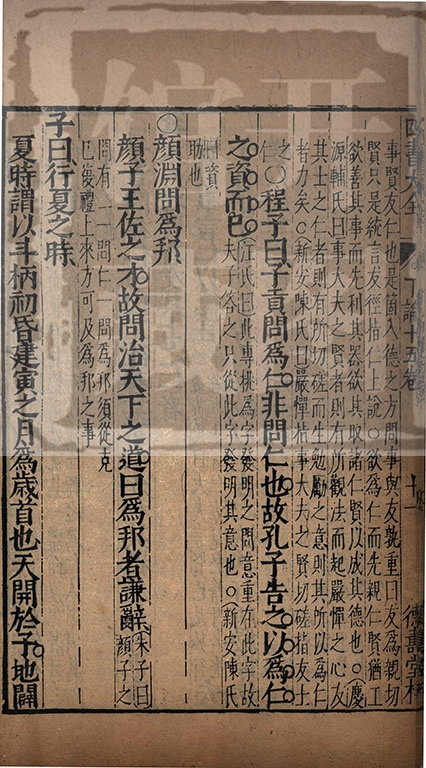 四書大全 下論十五卷 十一 德壽堂梓
事賢友仁也是箇入德之方問事與友孰重曰友爲親切
賢只是統言友徑指仁上說○欲爲仁而先親仁賢猶工
欲善其事而先利其器欲其取諸仁賢以成其德也○慶
源輔氏曰事大夫之賢者則有所觀法而起嚴憚之心友
其士之仁者則有所切磋而生勉勵之意則其所以爲仁
者力矣○新安陳氏曰嚴憚指事大夫之賢切磋指友士
之仁○程子曰子貢問爲仁非問仁也故孔子告之以爲仁
之資而已
汪氏曰此專挑爲字發明之問意重在此字故
夫子答之只從此字發明其意也○新安陳氏
曰資
助也
○顏淵問爲邦
顏子王佐之才故問治天下之道曰爲邦者謙辭
朱子曰
顏子之
問有二一問仁一問爲邦須從克
己復禮上來方可及爲邦之事
子曰行夏之時
夏時謂以斗柄初昏建寅之月爲歲首也天開於子地闢